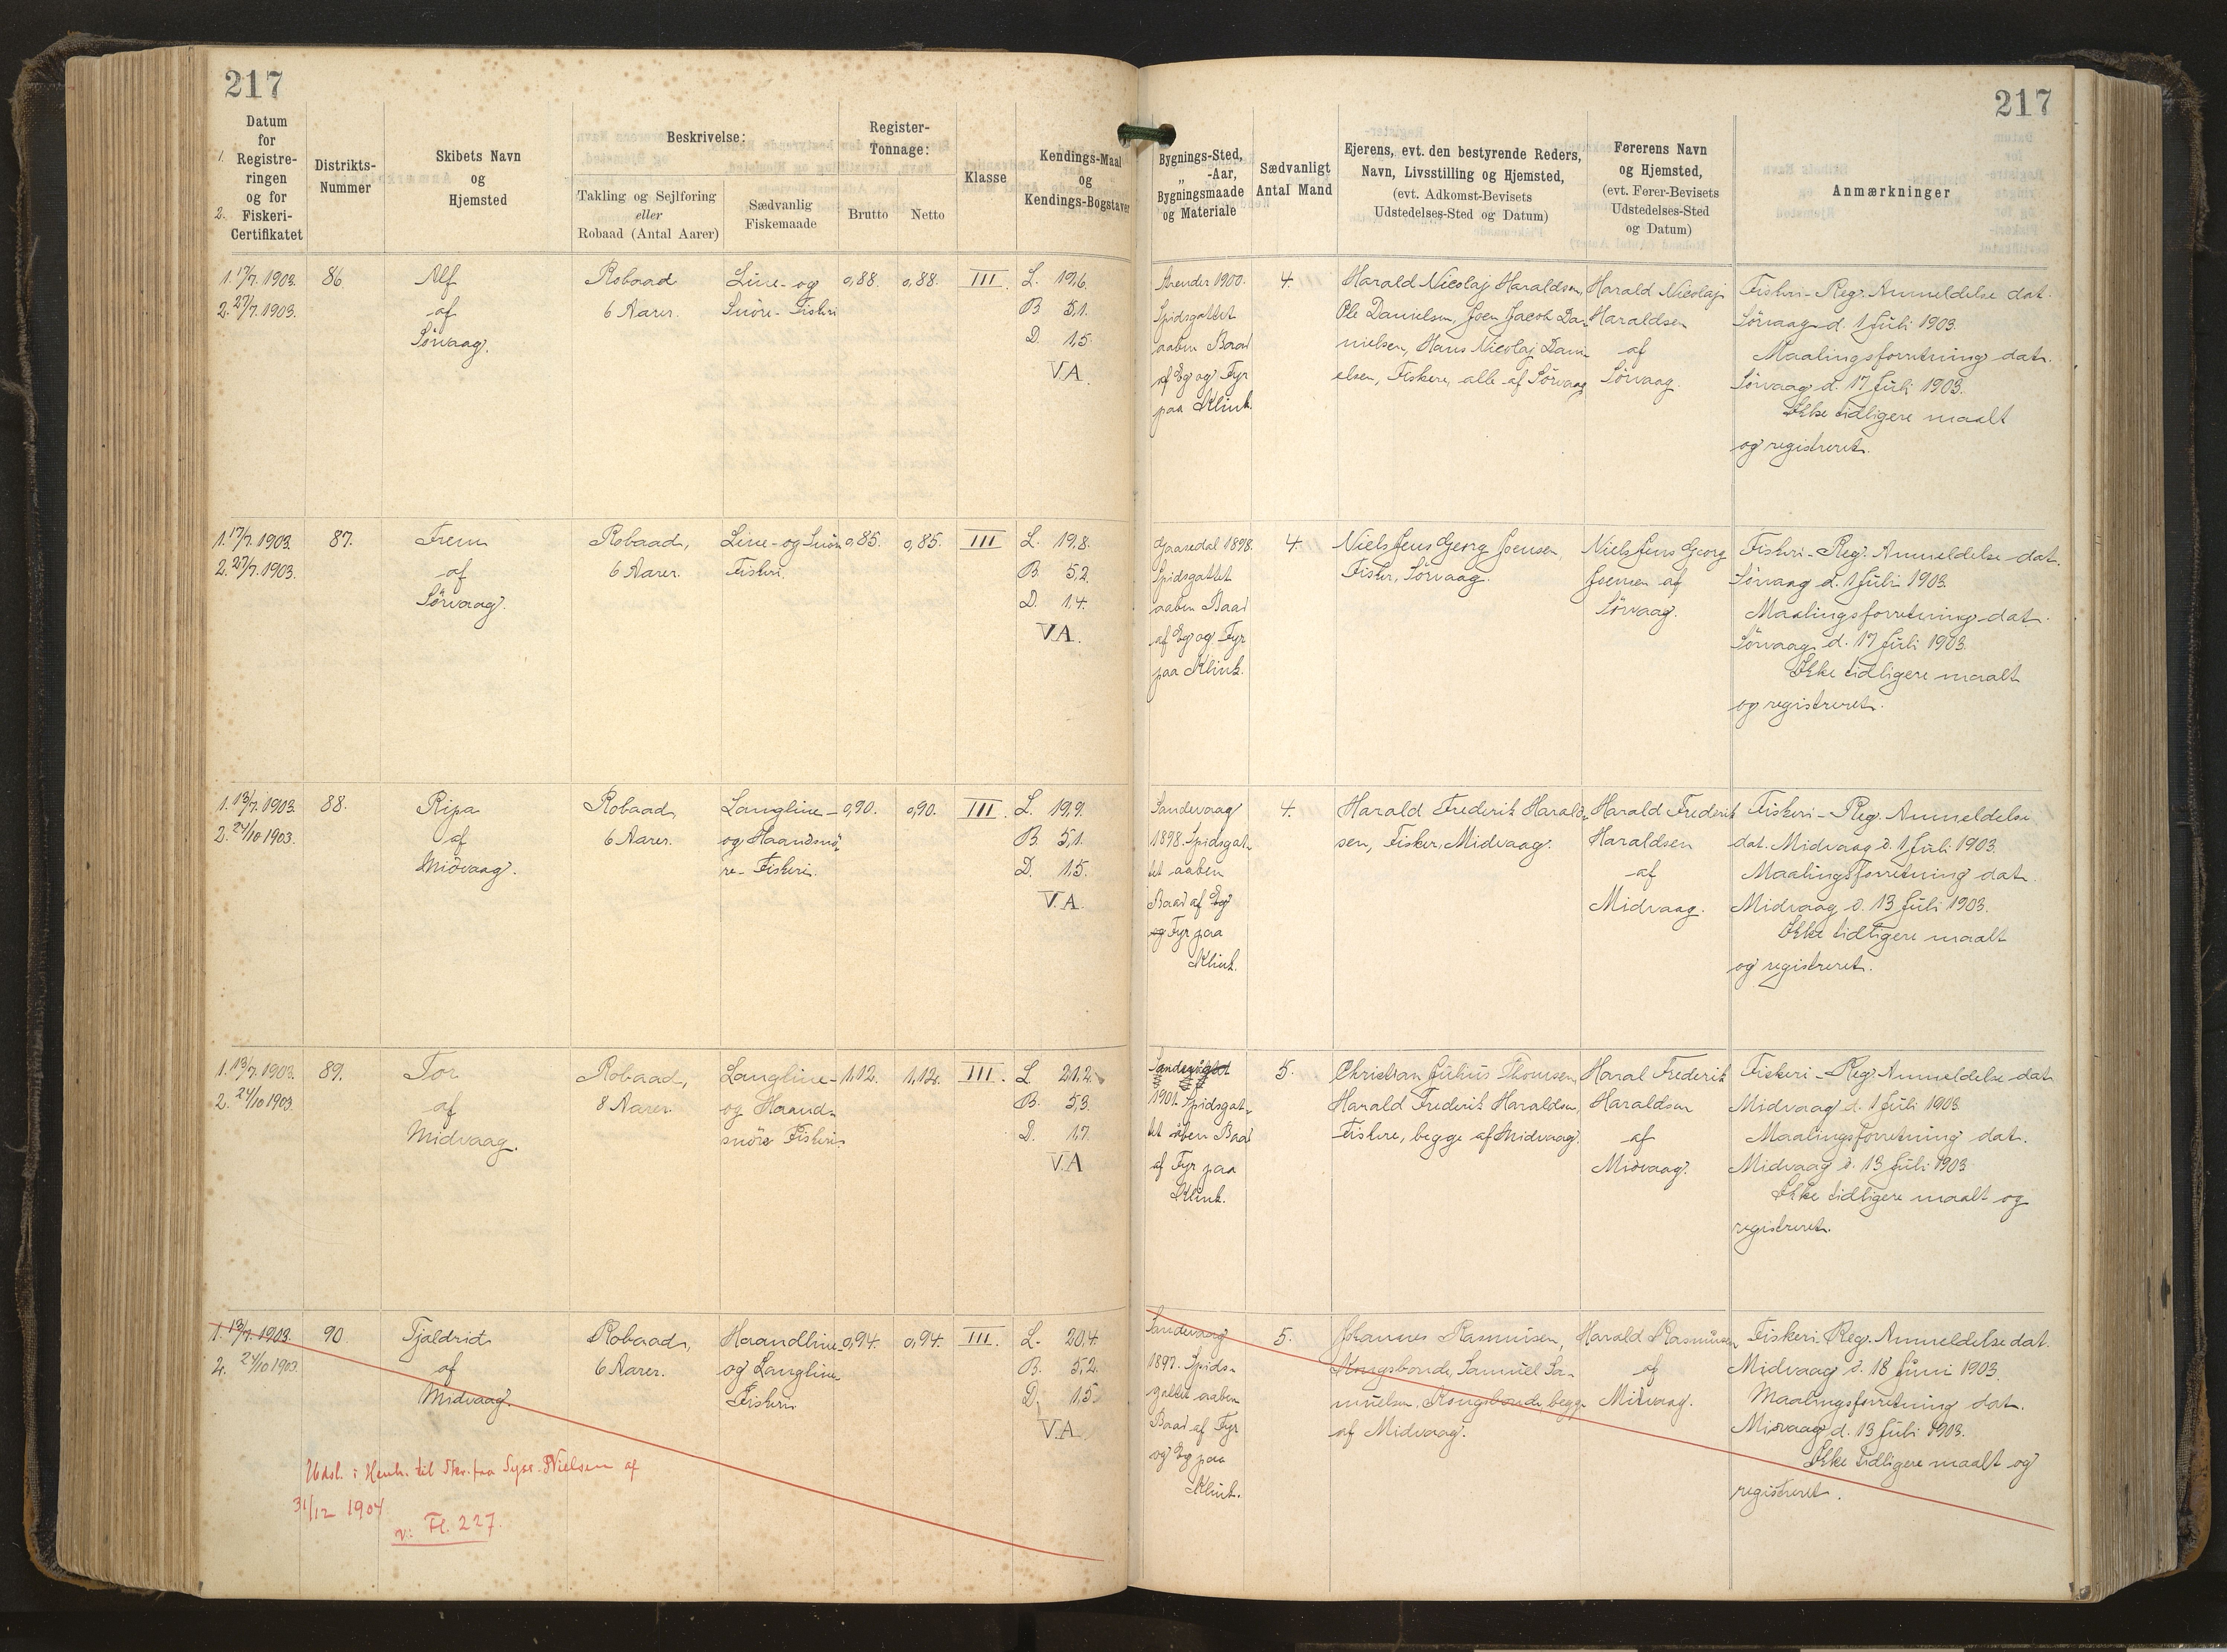 217
217
Datum
for
1. Registre-
ringen
og for
2. Fiskeri-
Certifikatet
Distrikts-
Nummer
Skibets Navn
og
Hjemsted
Beskrivelse:
Takling og Sejlføring
eller
Robaad (Antal Aarer)
Sædvanlig
Fiskemaade
Register-
Tonnage:
Brutto
Netto
Klasse
Kendings-Maal
og
Kendings-Bogstaver
Bygnings-Sted,
„ -Aar,
Bygningsmaade
og Materiale
Sædvanligt
Antal Mand
Ejerens, evt. den bestyrende Reders,
Navn, Livsstilling og Hjemsted,
(evt. Adkomst-Bevisets
Udstedelses-Sted og Datum)
Førerens Navn
og Hjemsted,
(evt. Fører-Bevisets
Udstedelses-Sted
og Datum)
Anmærkninger
1. 17/7. 1903.
2. 27/7. 1903.
86
Alf
af
Sörvaag.
Robaad
6 Aarer.
Line- og
Snöre- Fiskeri
0,88.
0,88.
III.
L. 19,6.
B. 5,1.
D. 1,5.
V.A.
1900.
Spidsgattet
aaben Baad
af Eg og Fyr
paa Klink.
4.
Harald Nicolaj Haraldsen,
Ole Danielsen, Joen Jacob Da-
nielsen, Hans Nicolaj Dani-
elsen, Fiskere, alle af Sörvaag
Harald Nicolaj
Haraldsen
af
Sörvaag.
Fiskeri-Reg. Anmeldelse dat.
Sörvaag d. 1 Juli 1903.
Maalingsforretning dat.
Sörvaag d. 17 Juli 1903.
Ikke tidligere maalt
og registreret.
1. 17/7. 1903.
2. 27/7. 1903.
87.
Frem
af
Sörvaag.
Robaad,
6 Aarer.
Line- og Snöre
Fiskeri
0,85.
0,85.
III
L. 19,8.
B. 5,2.
D. 1,4.
V.A.
Gaasedal 1898.
Spidsgattet
aaben Baad
af Eg og Fyr
paa Klink.
4.
Niels Jens Georg Joensen,
Fisker, Sörvaag.
Niels Jens Georg
Joensen af
Sörvaag.
Fiskeri-Reg. Anmeldelse dat.
Sörvaag d. 1 Juli 1903.
Maalingsforretning dat.
Sörvaag d. 17 Juli 1903.
Ikke tidligere maalt
og registreret.
1. 13/7. 1903.
2. 24/10 1903.
88.
Ripa
af
Midvaag.
Robaad,
6 Aarer.
Langline-
og Haandsnö-
re- Fiskeri.
0,90.
0,90.
III.
L. 19,9.
B. 5,1.
D. 1,5.
V.A.
Sandevaag
1898. Spidsgat-
tet aaben
Baad af Eg
og Fyr paa
Klink.
4.
Harald Frederik Harald-
sen, Fisker, Midvaag.
Harald Frederik
Haraldsen
af
Midvaag.
Fiskeri-Reg. Anmeldelse
dat. Midvaag d. 1 Juli 1903.
Maalingsforretning dat.
Midvaag d. 13 Juli 1903.
Ikke tidligere maalt
og registreret.
1. 13/7. 1903.
2. 24/10 1903.
89.
Tor
af
Midvaag.
Robaad,
8 Aarer.
Langline-
og Haand-
snöre Fiskeri.
1,12.
1,12.
III.
L. 21,2.
B. 5,3.
D. 1,7.
V.A
1901. Spidsgat-
tet åben Baad
af Fyr paa
Klink.
5.
Christian Julius Thomsen,
Harald Frederik Haraldsen,
Fiskere, begge af Midvaag.
Haral Frederik
Haraldsen
af
Midvaag.
Fiskeri-Reg. Anmeldelse dat.
Midvaag d. 1 Juli 1903.
Maalingsforretning dat.
Midvaag d. 13 Juli 1903.
Ikke tidligere maalt og
registreret.
1. 13/7. 1903.
2. 24/10 1903.
90.
Tjaldrid
af
Midvaag.
Robaad,
6 Aarer.
Haandline-
og Langline
Fiskeri
0,94.
0,94.
III.
L. 20,4
B. 5,2
D. 1,5
V.A.
Sandevaag
1897. Spids-
gattet aaben
Baad af Fyr
og Eg paa
Klink.
5.
Johannes Rasmussen,
Kongsbonde, Samuel Sa-
muelsen, Kongsbonde, begge
af Midvaag.
Harald Rasmussen
af
Midvaag.
Fiskeri-Reg. Anmeldelse dat.
Midvaag d. 18 Juni 1903.
Maalingsforretning dat.
Midvaag d. 13 Juli 1903.
Ikke tidligere maalt og
registreret.
Udsl. i Henh. til Skr. fra Syss. Nielsen af
31/12 1904
v: Fl. 227.